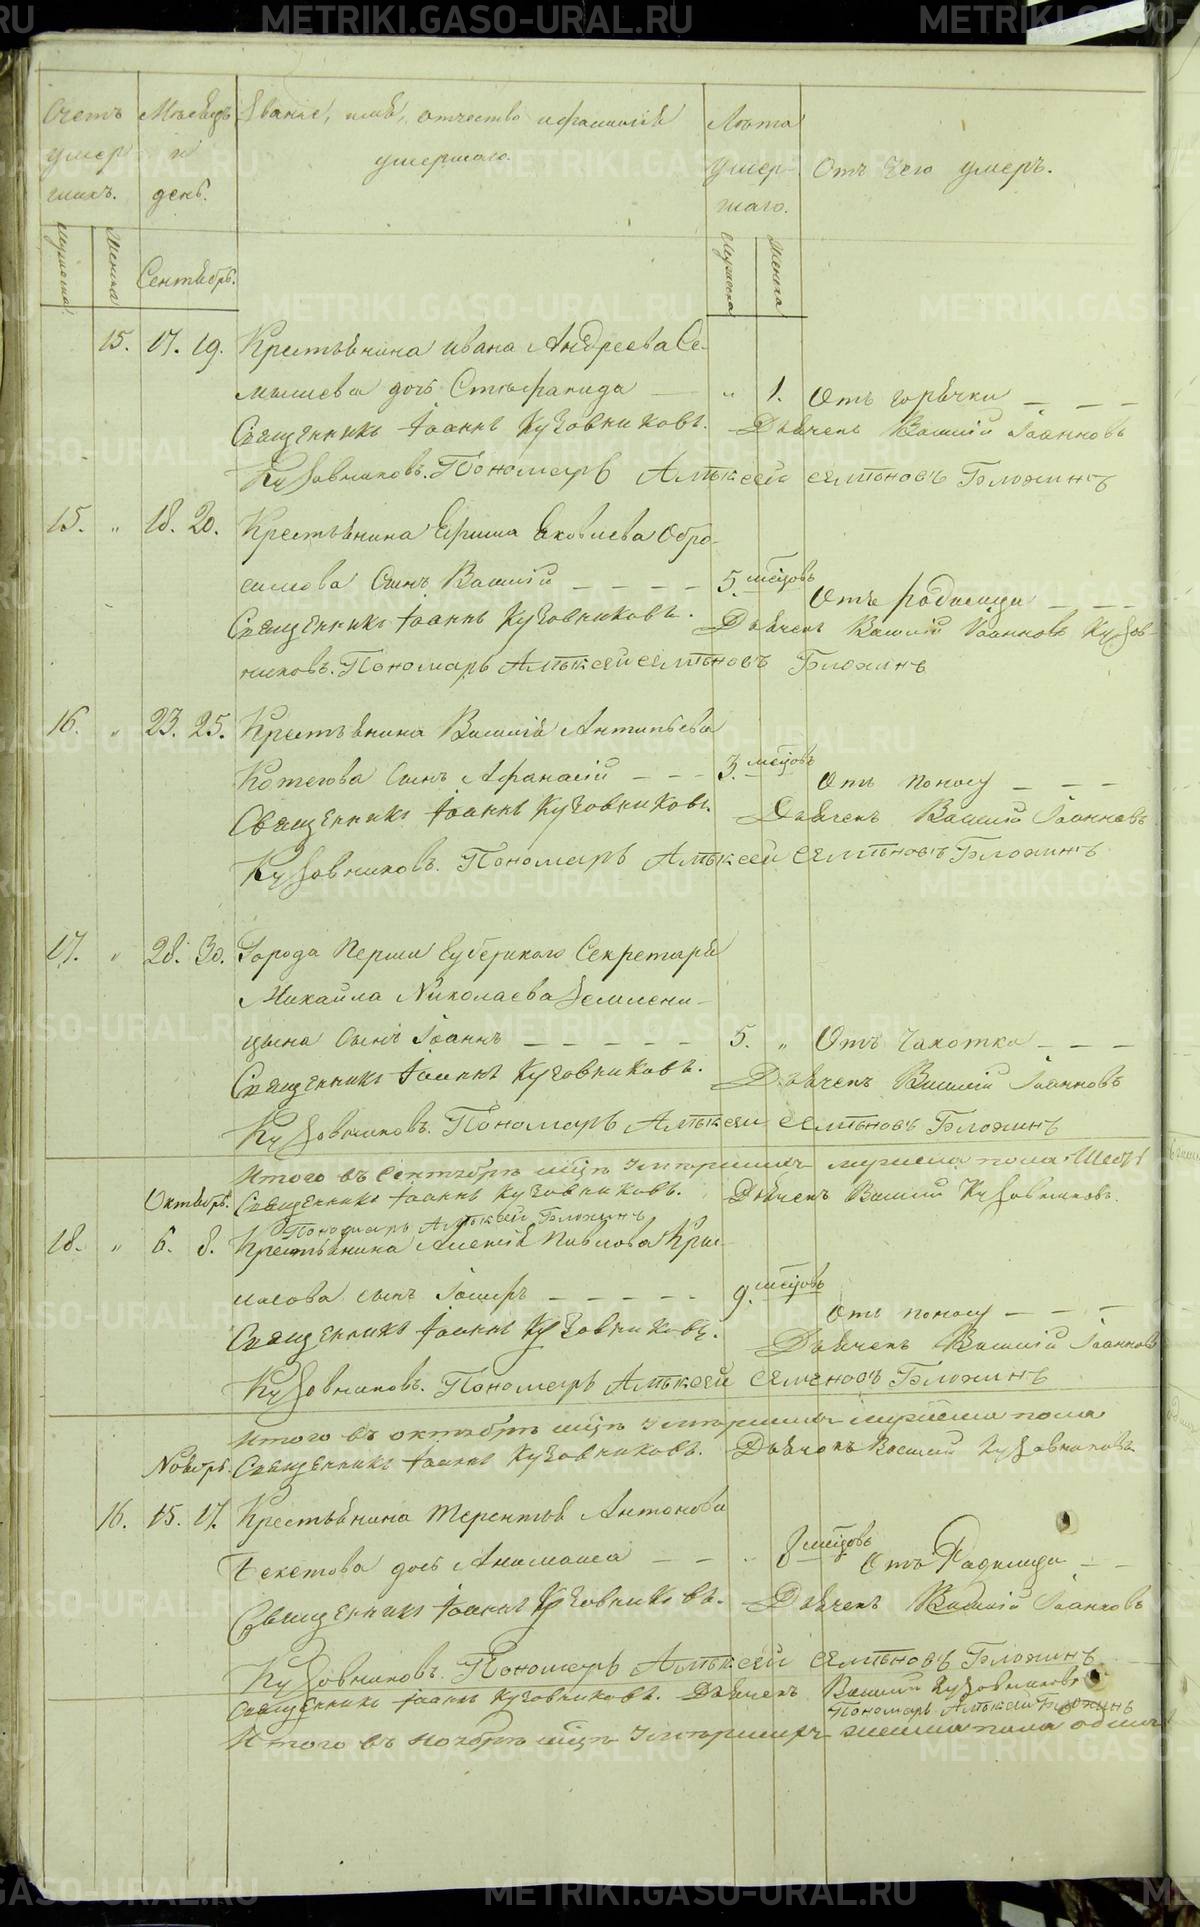 Счетъ умер шихъ.
Мѣсяцъ и день.
Званіе, имя, отчество и фамилія умершаго.
Лѣта умер- шаго.
Отъ чего умеръ.
Мужеска
Женска
Сентябрь.
Мужеска
Женска
15. 17. 19. Крестьянина Ивана Андреева Се-
мышева дочь Стефанида — „ 1. Отъ горячки — — —
Священникъ Іоаннъ Кузовниковъ. Дьячекъ Василій Іоанновъ
Кузовниковъ. Пономарь Алѣксѣй Семѣновъ Бложинъ
15. „ 18. 20. Крестьянина Ефима Яковлева Обро-
симова сынъ Василій — — — — 5. мѣсцовъ Отъ родимца — — —
Священникъ Іоаннъ Кузовниковъ. Дьячекъ Василій Іоанновъ Кузов-
никовъ. Пономарь Алѣксѣй Семѣновъ Бложинъ
16. „ 23. 25. Крестьянина Василія Антипьева
Котегова сынъ Афанасій — — — 3. мѣсцовъ Отъ поносу — — —
Священникъ Іоаннъ Кузовниковъ. Дьячекъ Василій Іоанновъ
Кузовниковъ. Пономарь Алѣксѣй Семѣновъ Бложинъ
17. „ 28. 30. Города Перми Губернскаго Секретаря
Михайла Николаева Землени-
цына сынъ Іоаннъ — — — — — 5. „ Отъ чахотки — — —
Священникъ Іоаннъ Кузовниковъ. Дьячекъ Василій Іоанновъ
Кузовниковъ. Пономарь Алѣксѣй Семѣновъ Бложинъ
Итого въ сентябрѣ мцѣ умершихъ мужеска пола
Октябрь. Священникъ Іоаннъ Кузовниковъ. Дьячекъ Василій Кузовниковъ.
Пономарь Алѣксѣй Бложинъ
18. „ 6. 8. Крестьянина Алексѣя Павлова
сынъ — — — — — 9. мѣсцовъ Отъ поносу — — —
Священникъ Іоаннъ Кузовниковъ. Дьячекъ Василій Іоанновъ
Кузовниковъ. Пономарь Алѣксѣй Семеновъ Бложинъ
Итого въ октябрѣ мцѣ умершихъ мужеска пола
Ноябрь. Священникъ Іоаннъ Кузовниковъ. Дьячокъ Василий Кузовниковъ.
16. 15. 17. Крестьянина Терентья Антонова
Бекетова дочь — — „ 8 мѣсцовъ Отъ Родимца — —
Священникъ Іоаннъ Кузовниковъ. Дьячекъ Василій Іоанновъ
Кузовниковъ. Пономарь Алѣксѣй Семѣновъ Бложинъ
Священникъ Іоаннъ Кузовниковъ. Дьячекъ Василій Кузовниковъ
Пономарь Алѣксѣй Бложинъ
Итого въ ноябрѣ мцѣ умершихъ женска пола одна
METRIKI.GASO-URAL.RU